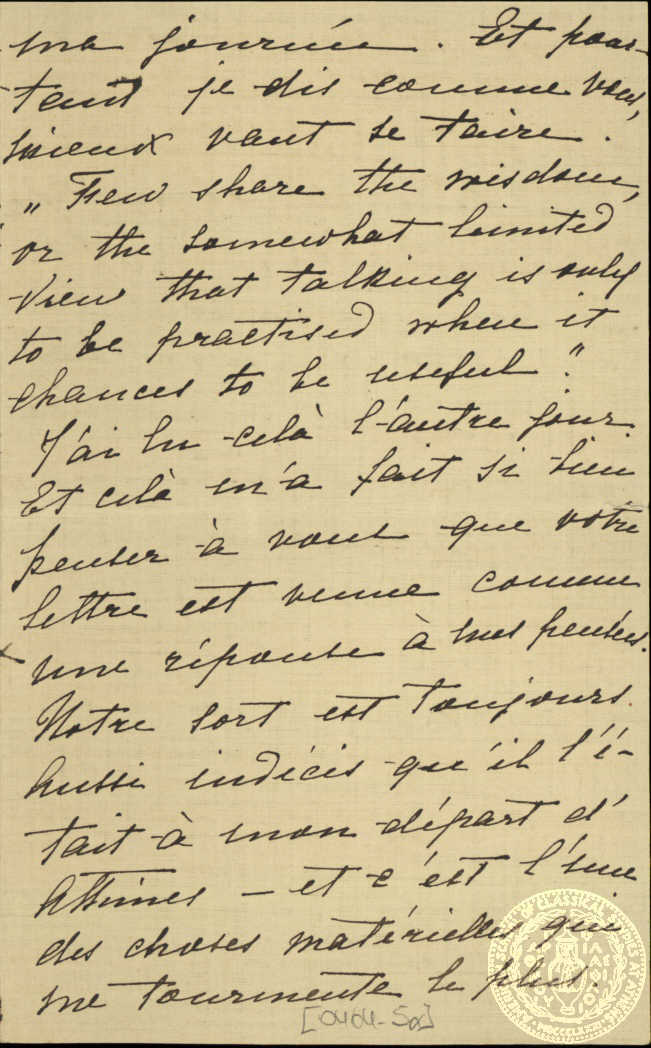 ma journée. Et pour-
tant je dis comme vous,
mieux vaut se taire.
„Few share the wisdom,
or the somewhat limited
view that talking is only
to be practised when it
chances to be useful."
J'ai lu celà l'autre jour.
Et celà m'a fait si bien
penser à vous que votre
lettre est venue comme
une réponse à mes pensées.
Notre sort est toujours
aussi indécis qu'il l'é-
tait à mon départ d'
Athènes – et c'est l'une
des choses matérielles que
me tourmente le plus.
[0404-5α]
AMERICAN SCHOOL OF CLASSICAL STUDIES AT ATHENS